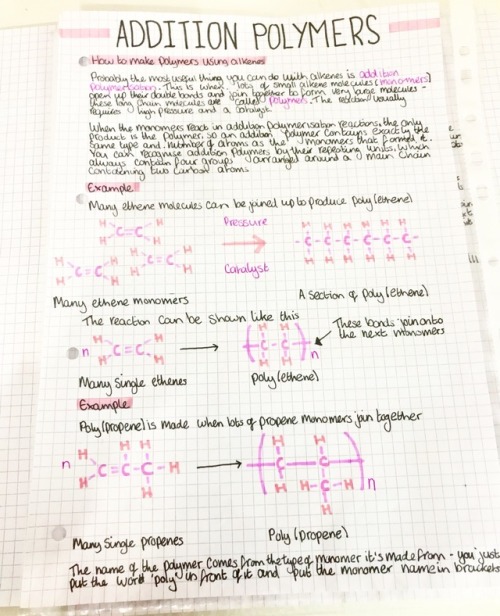 ADDITION POLYMERS
How to make Polymers Using alkenes
Probably the most useful thing you can do with alkenes is addition
Polymerisation. This is when lots of small alkene molecules (monomers)
open up their double bonds and join together to form very large molecules -
these long chain molecules are called Polymers. The reaction usually
requires high pressure and a catalyst.
When the monomers react in addition polymerisation reactions, the only
product is the Polymer, so an addition polymer contains exactly the
same type and number of atoms as the monomers that formed it.
You can recognise addition Polymers by their repeating units, which
always contain four groups arranged around a main chain
containing two carbon atoms
Example
Many ethene molecules can be joined up to produce Poly(ethene)
H H
C=C
H H
Pressure
Catalyst
H H H H H H
-C-C-C-C-C-C-
H H H H H H
H H H H
C=C C=C
H H H H
Many ethene monomers
A section of Poly(ethene)
The reaction can be shown like this
These bonds join onto
the next monomers
H H
n C=C
H H
H H
C-C
H H
n
Many Single ethenes
Poly(ethene)
Example
Poly(propene) is made when lots of propene monomers join together
H H H
n C=C-C-H
H H
H H
C C
H H-C-H n
H
Many Single propenes
Poly(propene)
The name of the polymer comes from the type of monomer it's made from - you just
put the word 'poly' in front of it and put the monomer name in brackets